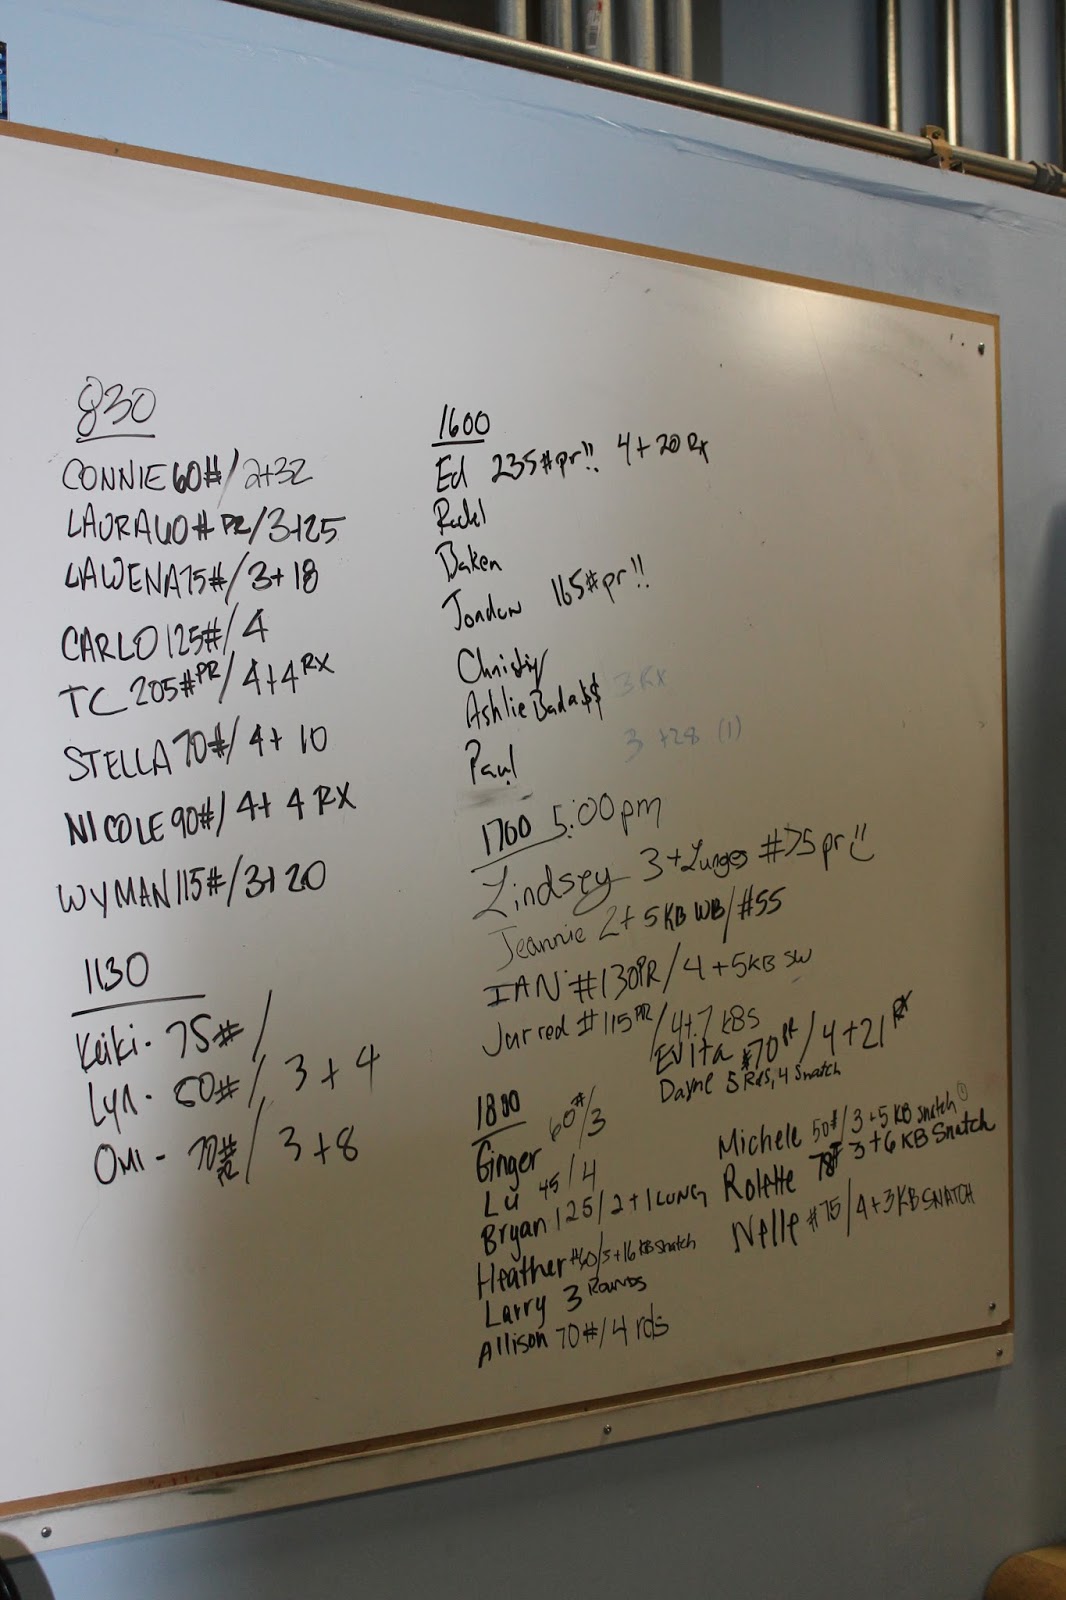 830
CONNIE 60#/2+32
LAURA 60# PR/3+25
LAWENA 75#/3+18
CARLO 125#/4
TC 205# PR/4+4 RX
STELLA 70#/4+10
NICOLE 90#/4+4 RX
WYMAN 115#/3+20
1130
Keiki - 75#/
Lyn - 80#/ 3+4
OMI - 70# PR/ 3+8
1600
Ed 235# pr!! 4+20 Rx
Baken
165# pr!!
Christy
Ashlie Bada$$ 3 RX
Paul 3+28 (1)
1700 5:00pm
Lindsey 3+Lunges #75 pr!!
Jeannie 2+5 KB WB/#55
IAN #130 PR/4+5 KB SW
Jarred #115 PR/4+7 KBS
Evita #70 PR/4+21 RX
Dayne 5 Rds, 4 Snatch
1800
Ginger 60#/3
Lu 45/4
Bryan 125/2+1 LUNG
Heather #60/3+16 KB Snatch
Larry 3 Rounds
Allison 70#/4 rds
Michele 50#/3+5 KB Snatch
Rolette 3+6 KB Snatch
Nelle #75/4+3 KB SNATCH